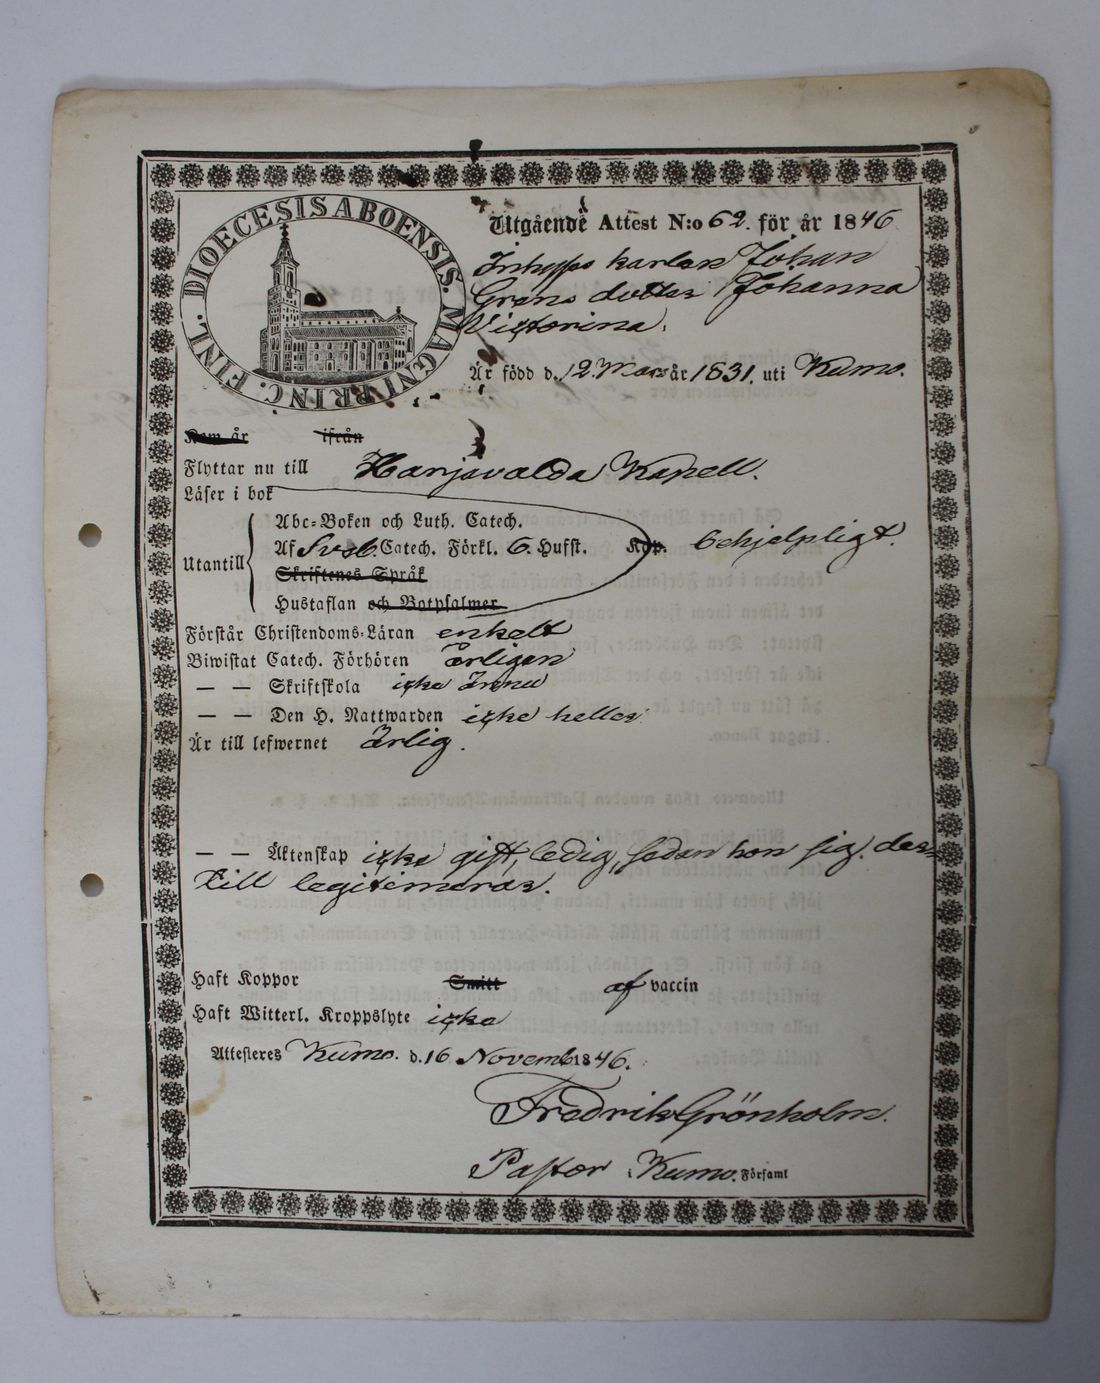 DIOECESIS ABOENSIS. MAGNI PRINC. FINL.
Utgående Attest N:o 62. för år 1846
Inhyses karlen Johan
Grens dotter Johanna
Victorina.
Är född d. 12 Mars år 1831. uti Kumo.
Kom år ifrån
Flyttar nu till Harjavalda Kapell.
Läser i bok
Abc-Boken och Luth. Catech.
Utantill Af Sveb. Catech. Förkl. 6. Hufst. Kop. behjelpligt.
Skriftenes Språk
Hustaflan och Botpsalmer
Förstår Christendoms-Läran enkelt
Biwistat Catech. Förhören årligen
— — Skriftskola icke ännu
— — Den H. Nattwarden icke heller
Är till lefwernet Ärlig.
— — Äktenskap icke gift, ledig, sedan hon sig der-
till legitimeras.
Haft Koppor Smitt af vaccin
Haft Witterl. Kroppslyte icke
Attesteras Kumo. d. 16 Novemb 1846.
Fredrik Grönholm.
Pastor i Kumo. Församl